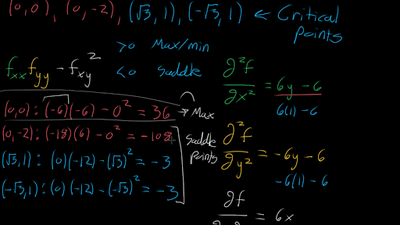 (0,0), (0,-2), (√3, 1), (-√3, 1) ← Critical Points
>0 Max/min
f_xx f_yy - f_xy^2 <0 Saddle
(0,0): (-6)(-6) - 0^2 = 36 → Max
(0,-2): (-18)(6) - 0^2 = -108
(√3,1): (0)(-12) - (√3)^2 = -3
(-√3,1): (0)(-12) - (-√3)^2 = -3
Saddle Points
∂²f/∂x² = 6y - 6
6(1) - 6
∂²f/∂y² = -6y - 6
-6(1) - 6
∂f = 6x